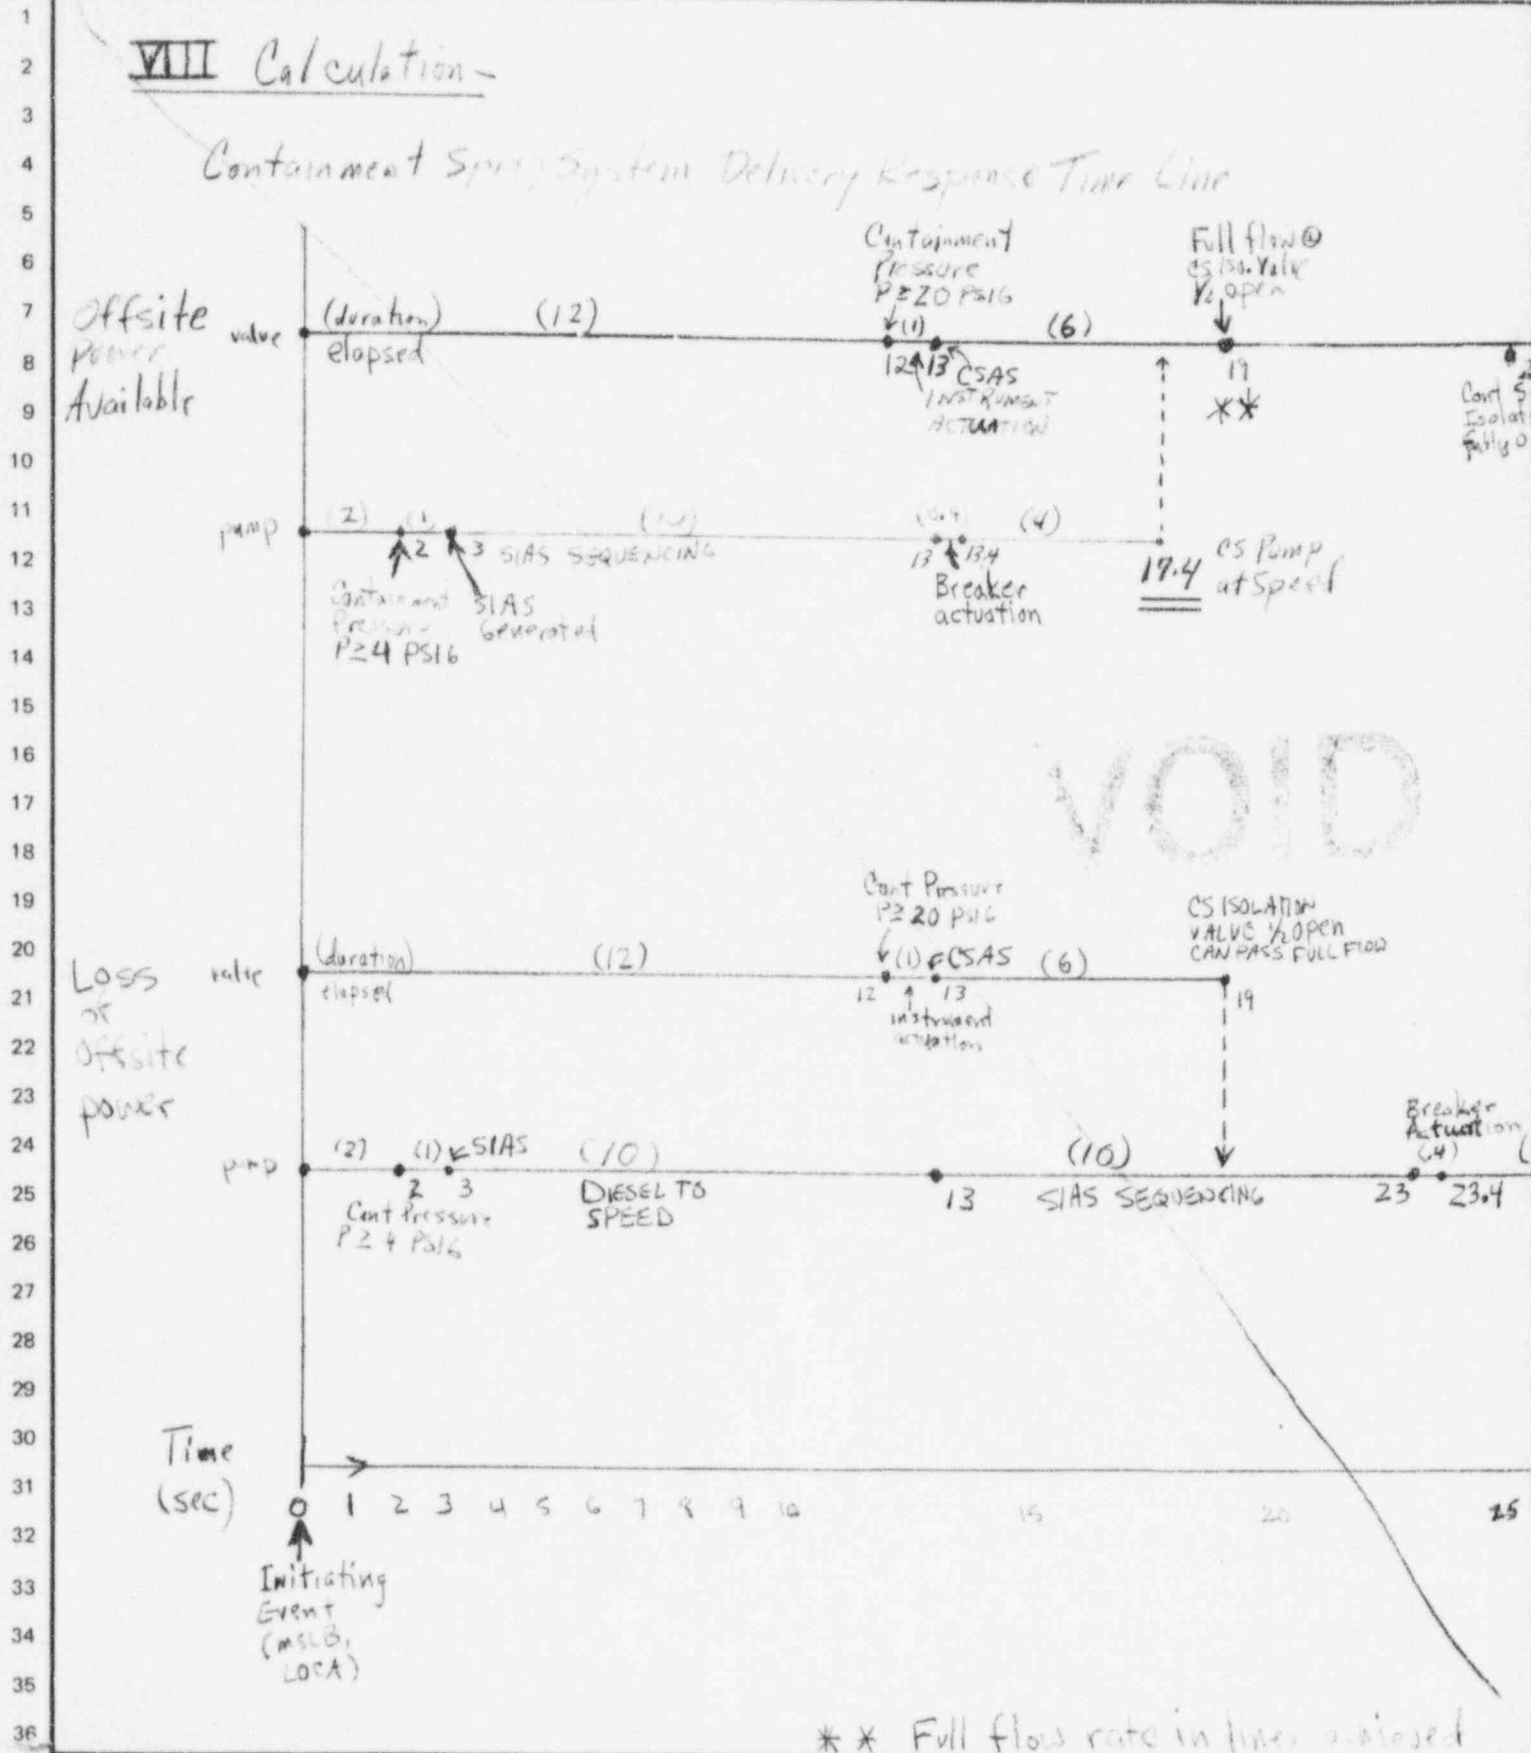 1
2
3
4
5
6
7
8
9
10
11
12
13
14
15
16
17
18
19
20
21
22
23
24
25
26
27
28
29
30
31
32
33
34
35
36
VIII Calculation -
Containment Spray System Delivery Response Time Line
Offsite
Power
Available
valve
(duration)
elapsed
(12)
Containment
Pressure
P ≥ 20 PSIG
(1)
12
13
CSAS
INSTRUMENT
ACTUATION
(6)
Full flow @
CS Iso. Valve
1/2 open
19
**
Cont
pump
(2)
(1)
2
3
SIAS SEQUENCING
(10)
Containment
Pressure
P ≥ 4 PSIG
SIAS
Generated
(0.4)
13
13.4
Breaker
actuation
(4)
17.4
CS Pump
at Speed
VOID
Loss
of
Offsite
power
valve
(duration)
elapsed
(12)
Cont Pressure
P ≥ 20 PSIG
(1)
CSAS
12
13
instrument
actuation
(6)
CS ISOLATION
VALVE 1/2 Open
CAN PASS FULL FLOW
19
pump
(2)
(1)
SIAS
2
3
Cont Pressure
P ≥ 4 PSIG
(10)
DIESEL TO
SPEED
13
(10)
SIAS SEQUENCING
Breaker
Actuation
(.4)
23
23.4
Time
(sec)
0 1 2 3 4 5 6 7 8 9 10 15 20 25
Initiating
Event
(MSLB,
LOCA)
** Full flow rate in lines achieved